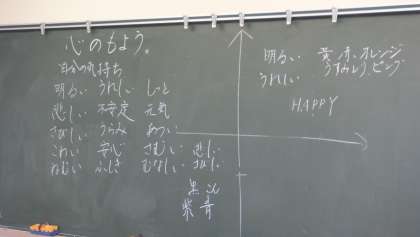 心のもよう。
自分の気持ち
明るい うれしい しっと
悲しい 不安定 元気
さびしい うらみ
こわい 安心 さむい 悲しい
ねむい ふしぎ むなしい さびしい
黒 こん
紫 青
明るい 黄、赤、オレンジ
うれしい うすみどり、ピンク
HAPPY